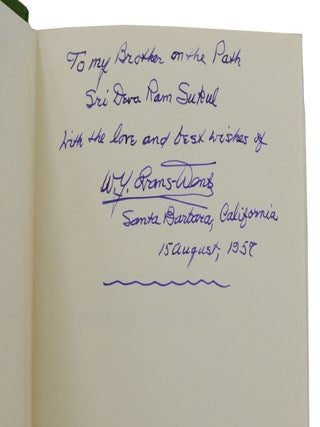 To my Brother on the Path
Sri Deva Ram Sukul
with the love and best wishes of
W.Y. Evans-Wentz
Santa Barbara, California
15 August, 1957